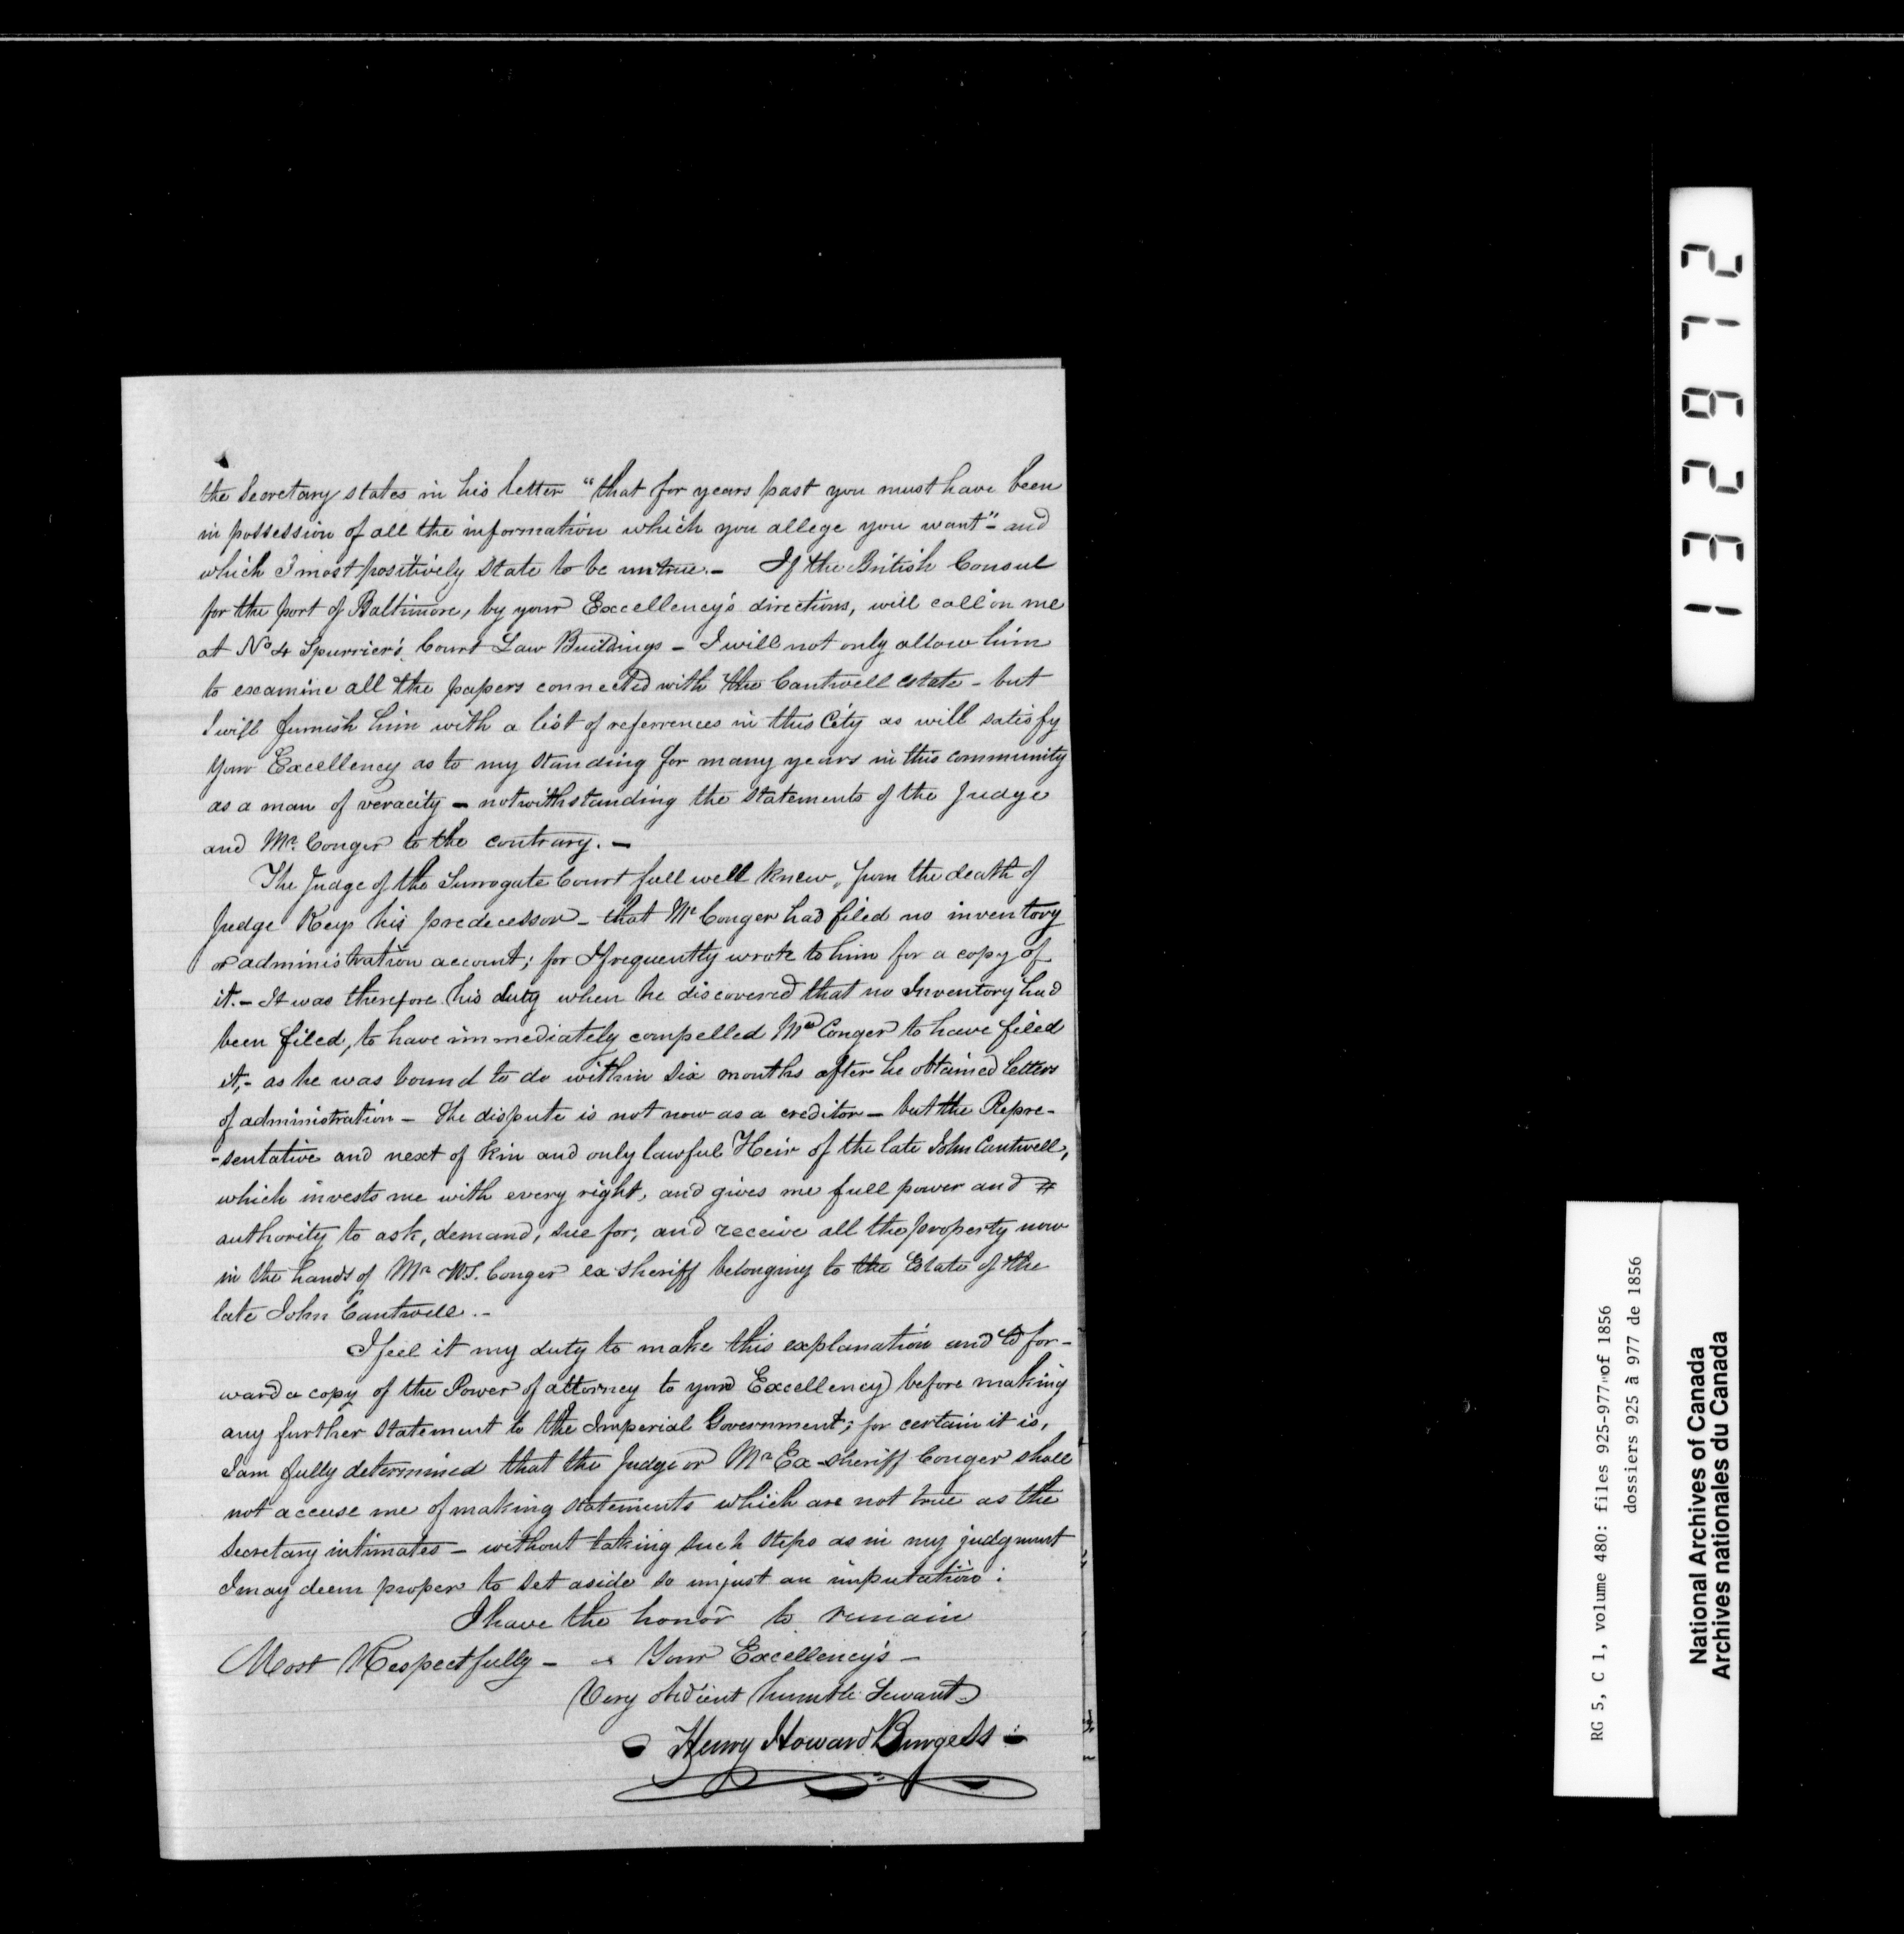 the Secretary states in his letter "that for years past you must have been
in possession of all the information which you allege you want"- and
which I most positively state to be untrue.- If the British Consul
for the port of Baltimore, by your Excellency's directions, will call on me
at No 4 Spurrier's Court Law Buildings - I will not only allow him
to examine all the papers connected with the Cantwell estate - but
I will furnish him with a list of referrences in this City as will satisfy
Your Excellency as to my standing for many years in this community
as a man of veracity - notwithstanding the statements of the Judge
and Mr. Conger to the contrary. -
The Judge of the Surrogate Court full well knew, from the death of
Judge Keys his predecessor - that Mr Conger had filed no inventory
or administration account; for I frequently wrote to him for a copy of
it. - It was therefore his duty when he discovered that no Inventory had
been filed, to have immediately compelled Mr Conger to have filed
it, - as he was bound to do within six months after he obtained letters
of administration - The dispute is not now as a creditor - but the Repre-
-sentative and next of kin and only lawful Heir of the late John Cantwell,
which invests me with every right, and gives me full power and
authority to ask, demand, sue for, and receive all the property now
in the hands of Mr W.S. Conger ex sheriff belonging to the Estate of the
late John Cantwell. -
I feel it my duty to make this explanation and to for-
ward a copy of the Power of attorney to your Excellency before making
any further statement to the Imperial Government; for certain it is,
I am fully determined that the Judge or Mr Ex-sheriff Conger shall
not accuse me of making statements which are not true as the
Secretary intimates - without taking such steps as in my judgment
I may deem proper to set aside so unjust an imputation:
I have the honor to remain
Most Respectfully - Your Excellency's -
Very obedient humble Servant
Henry Howard Burgess
132972
RG 5, C 1, volume 480: files 925-977 of 1856
dossiers 925 à 977 de 1856
National Archives of Canada
Archives nationales du Canada